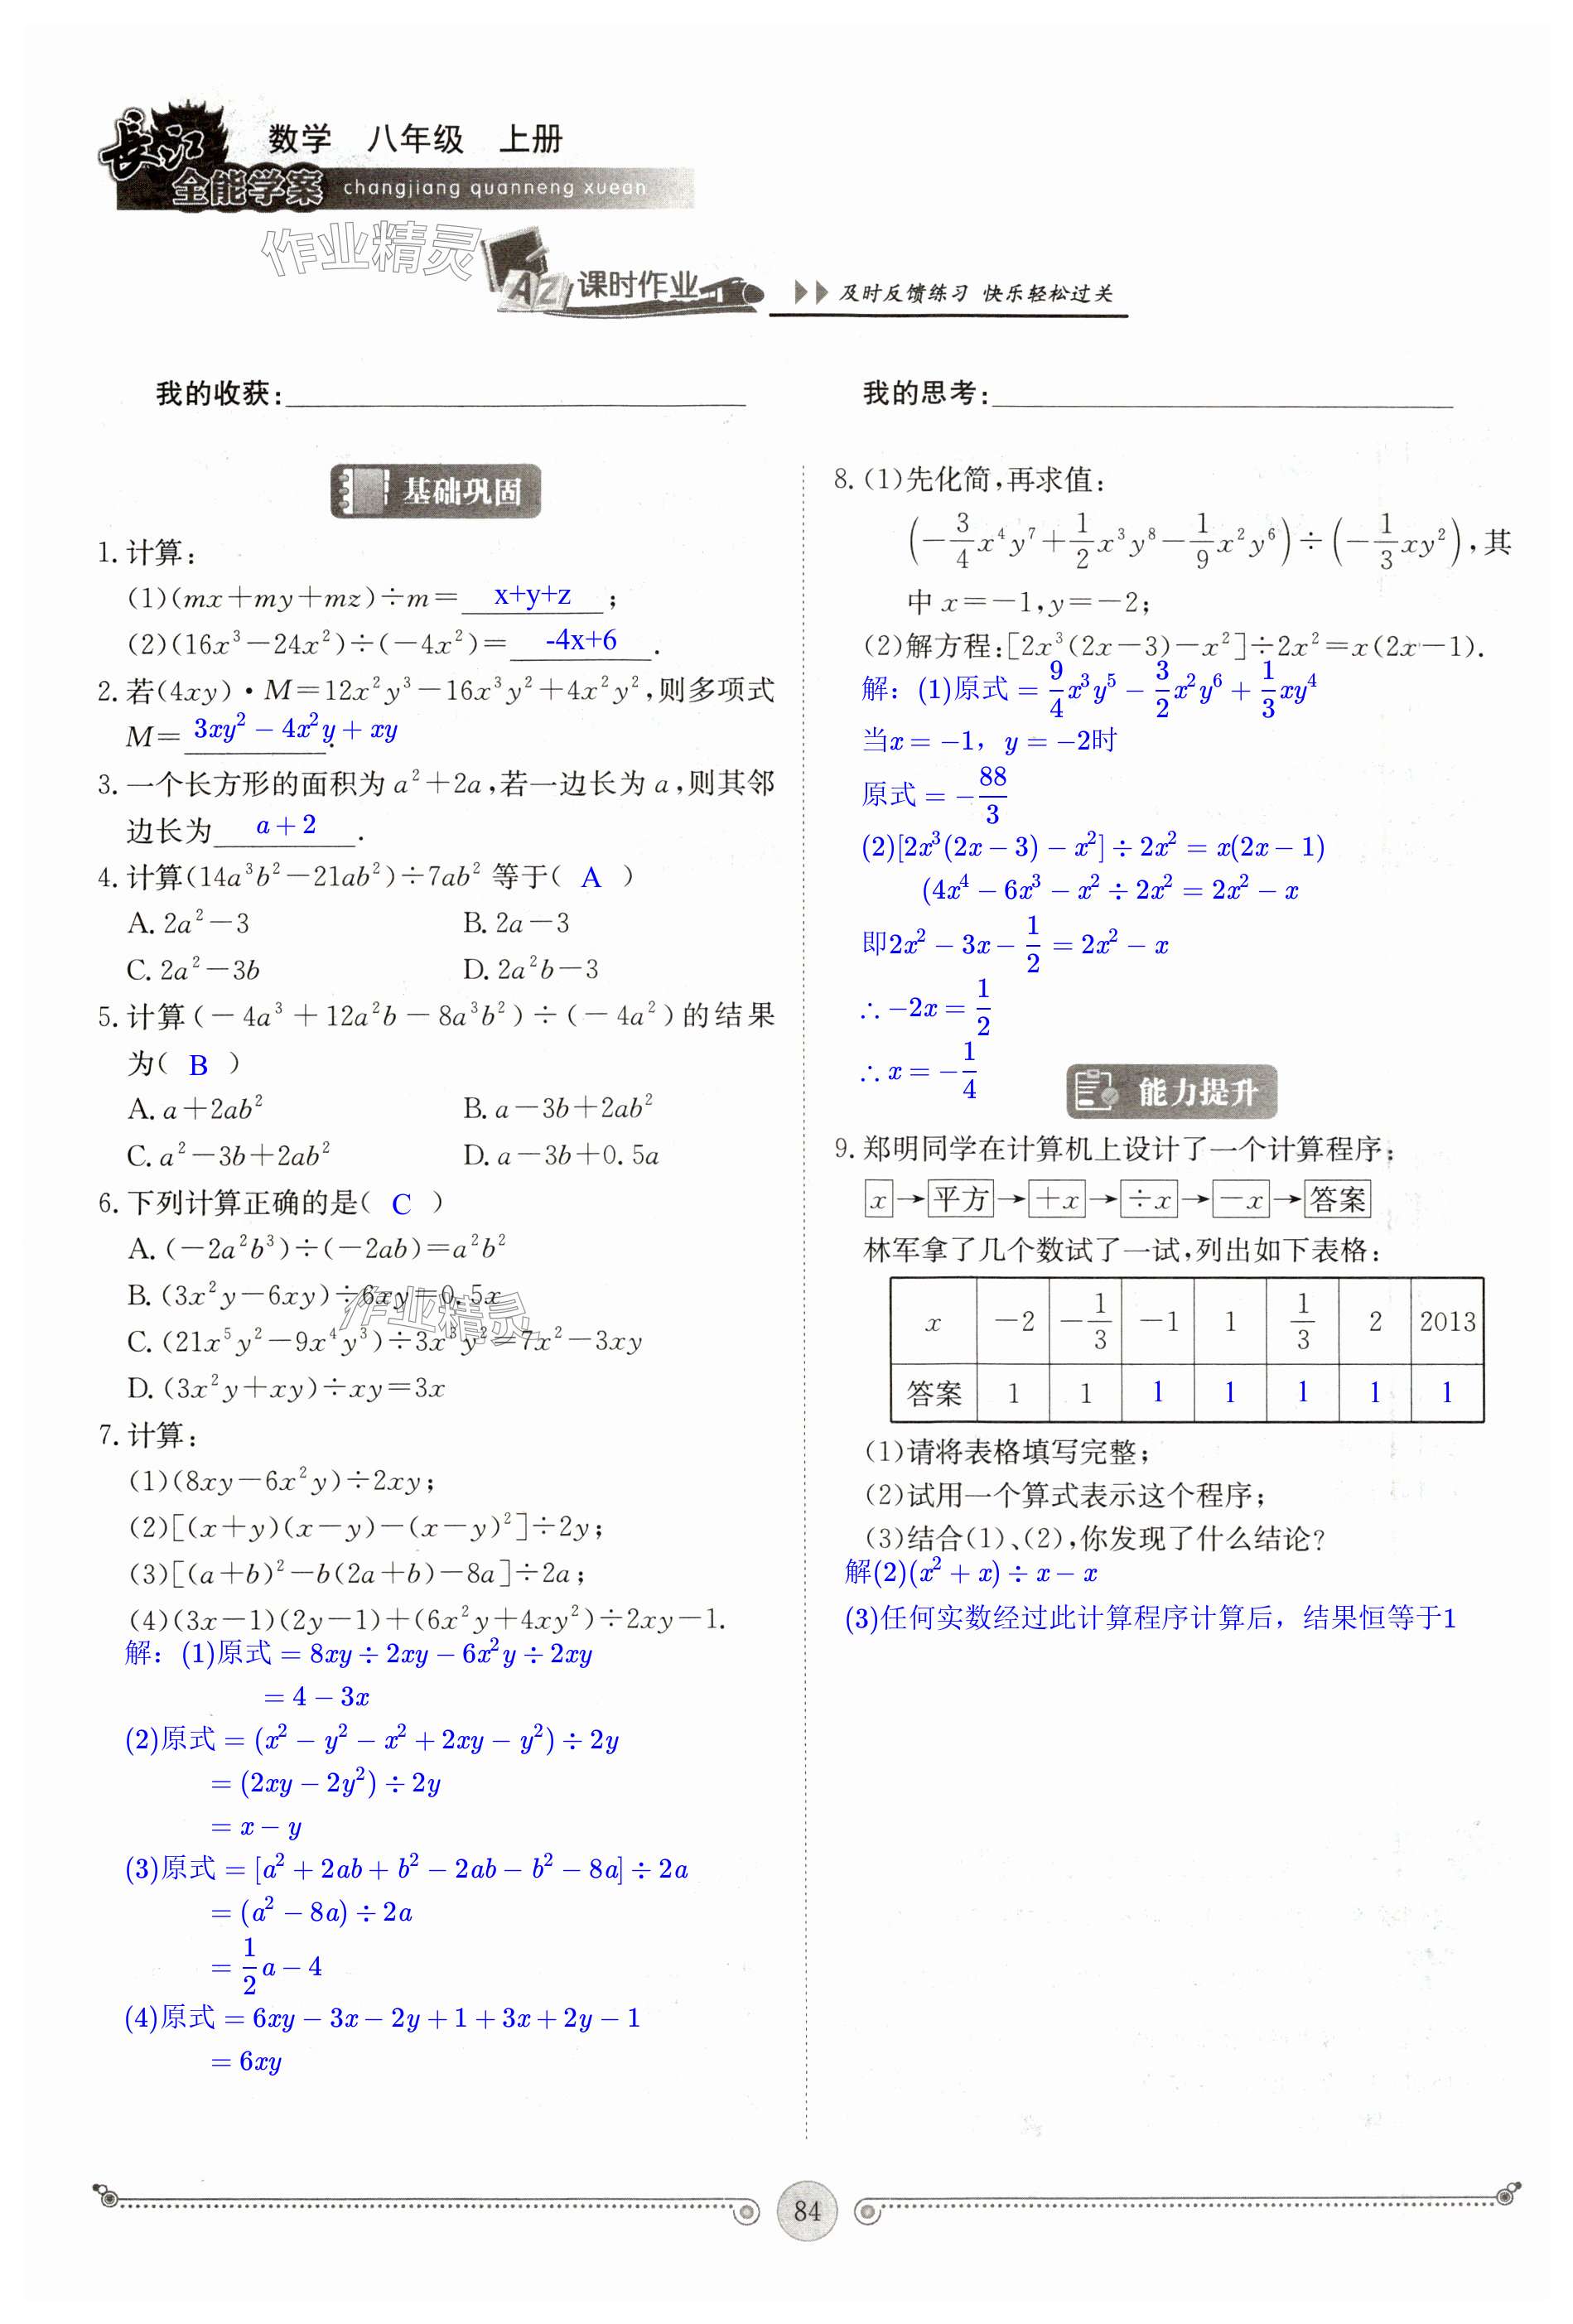 长江 数学 八年级 上册
全能学案 changjiang quanneng xuean
作业精灵
AZ 课时作业 及时反馈练习 快乐轻松过关
我的收获:
基础巩固
1. 计算:
(1)(mx+my+mz)÷m= x+y+z ;
(2)(16x³-24x²)÷(-4x²)= -4x+6 .
2. 若(4xy)·M=12x²y³-16x³y²+4x²y²,则多项式
M= 3xy² - 4x²y + xy .
3. 一个长方形的面积为a²+2a,若一边长为a,则其邻
边长为 a+2 .
4. 计算(14a³b²-21ab²)÷7ab² 等于( A )
A. 2a²-3 B. 2a-3
C. 2a²-3b D. 2a²b-3
5. 计算(-4a³+12a²b-8a³b²)÷(-4a²)的结果
为( B )
A. a+2ab² B. a-3b+2ab²
C. a²-3b+2ab² D. a-3b+0.5a
6. 下列计算正确的是( C )
A. (-2a²b³)÷(-2ab)=a²b²
B. (3x²y-6xy)÷6xy=0.5x
C. (21x⁵y²-9x⁴y³)÷3x³y²=7x²-3xy
D. (3x²y+xy)÷xy=3x
作业精灵
7. 计算:
(1)(8xy-6x²y)÷2xy;
(2)[(x+y)(x-y)-(x-y)²]÷2y;
(3)[(a+b)²-b(2a+b)-8a]÷2a;
(4)(3x-1)(2y-1)+(6x²y+4xy²)÷2xy-1.
解：(1)原式=8xy÷2xy-6x²y÷2xy
=4-3x
(2)原式=(x²-y²-x²+2xy-y²)÷2y
=(2xy-2y²)÷2y
=x-y
(3)原式=[a²+2ab+b²-2ab-b²-8a]÷2a
=(a²-8a)÷2a
=1/2 a-4
(4)原式=6xy-3x-2y+1+3x+2y-1
=6xy
我的思考:
8. (1)先化简,再求值:
(-3/4 x⁴y⁷+1/2 x³y⁸-1/9 x²y⁶)÷(-1/3 xy²),其
中 x=-1,y=-2;
(2)解方程:[2x³(2x-3)-x²]÷2x²=x(2x-1).
解：(1)原式=9/4 x³y⁵-3/2 x²y⁶+1/3 xy⁴
当x=-1，y=-2时
原式=-88/3
(2)[2x³(2x-3)-x²]÷2x²=x(2x-1)
(4x⁴-6x³-x²÷2x²=2x²-x
即2x²-3x-1/2=2x²-x
∴-2x=1/2
∴x=-1/4
能力提升
9. 郑明同学在计算机上设计了一个计算程序:
x→平方→+x→÷x→-x→答案
林军拿了几个数试了一试,列出如下表格:
x -2 -1/3 -1 1 1/3 2 2013
答案 1 1 1 1 1 1 1
(1)请将表格填写完整;
(2)试用一个算式表示这个程序;
(3)结合(1)、(2),你发现了什么结论?
解(2)(x²+x)÷x-x
(3)任何实数经过此计算程序计算后，结果恒等于1
84